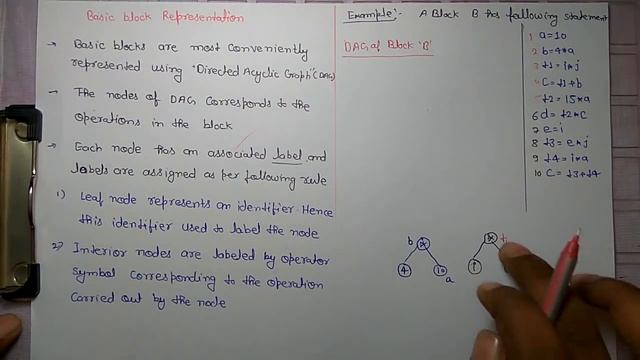 Basic block Representation
→ Basic blocks are most conveniently
represented using "Directed Acyclic Graph" (DAG)
→ The nodes of DAG corresponds to the
operations in the block
→ Each node has an associated label and
labels are assigned as per following rule
1) Leaf node represents an identifier. Hence
this identifier used to label the node
2) Interior nodes are labeled by operator
symbol corresponding to the operation
carried out by the node
Example:- A Block B has following statement
DAG of Block 'B'
1 a=10
2 b=4*a
3 t1=i*j
4 c=t1+b
t2=15*a
6 d=t2*c
7 e=i
8 t3=e*j
9 t4=i*a
10 c=t3+t4
b *
4 10
a
* t
i